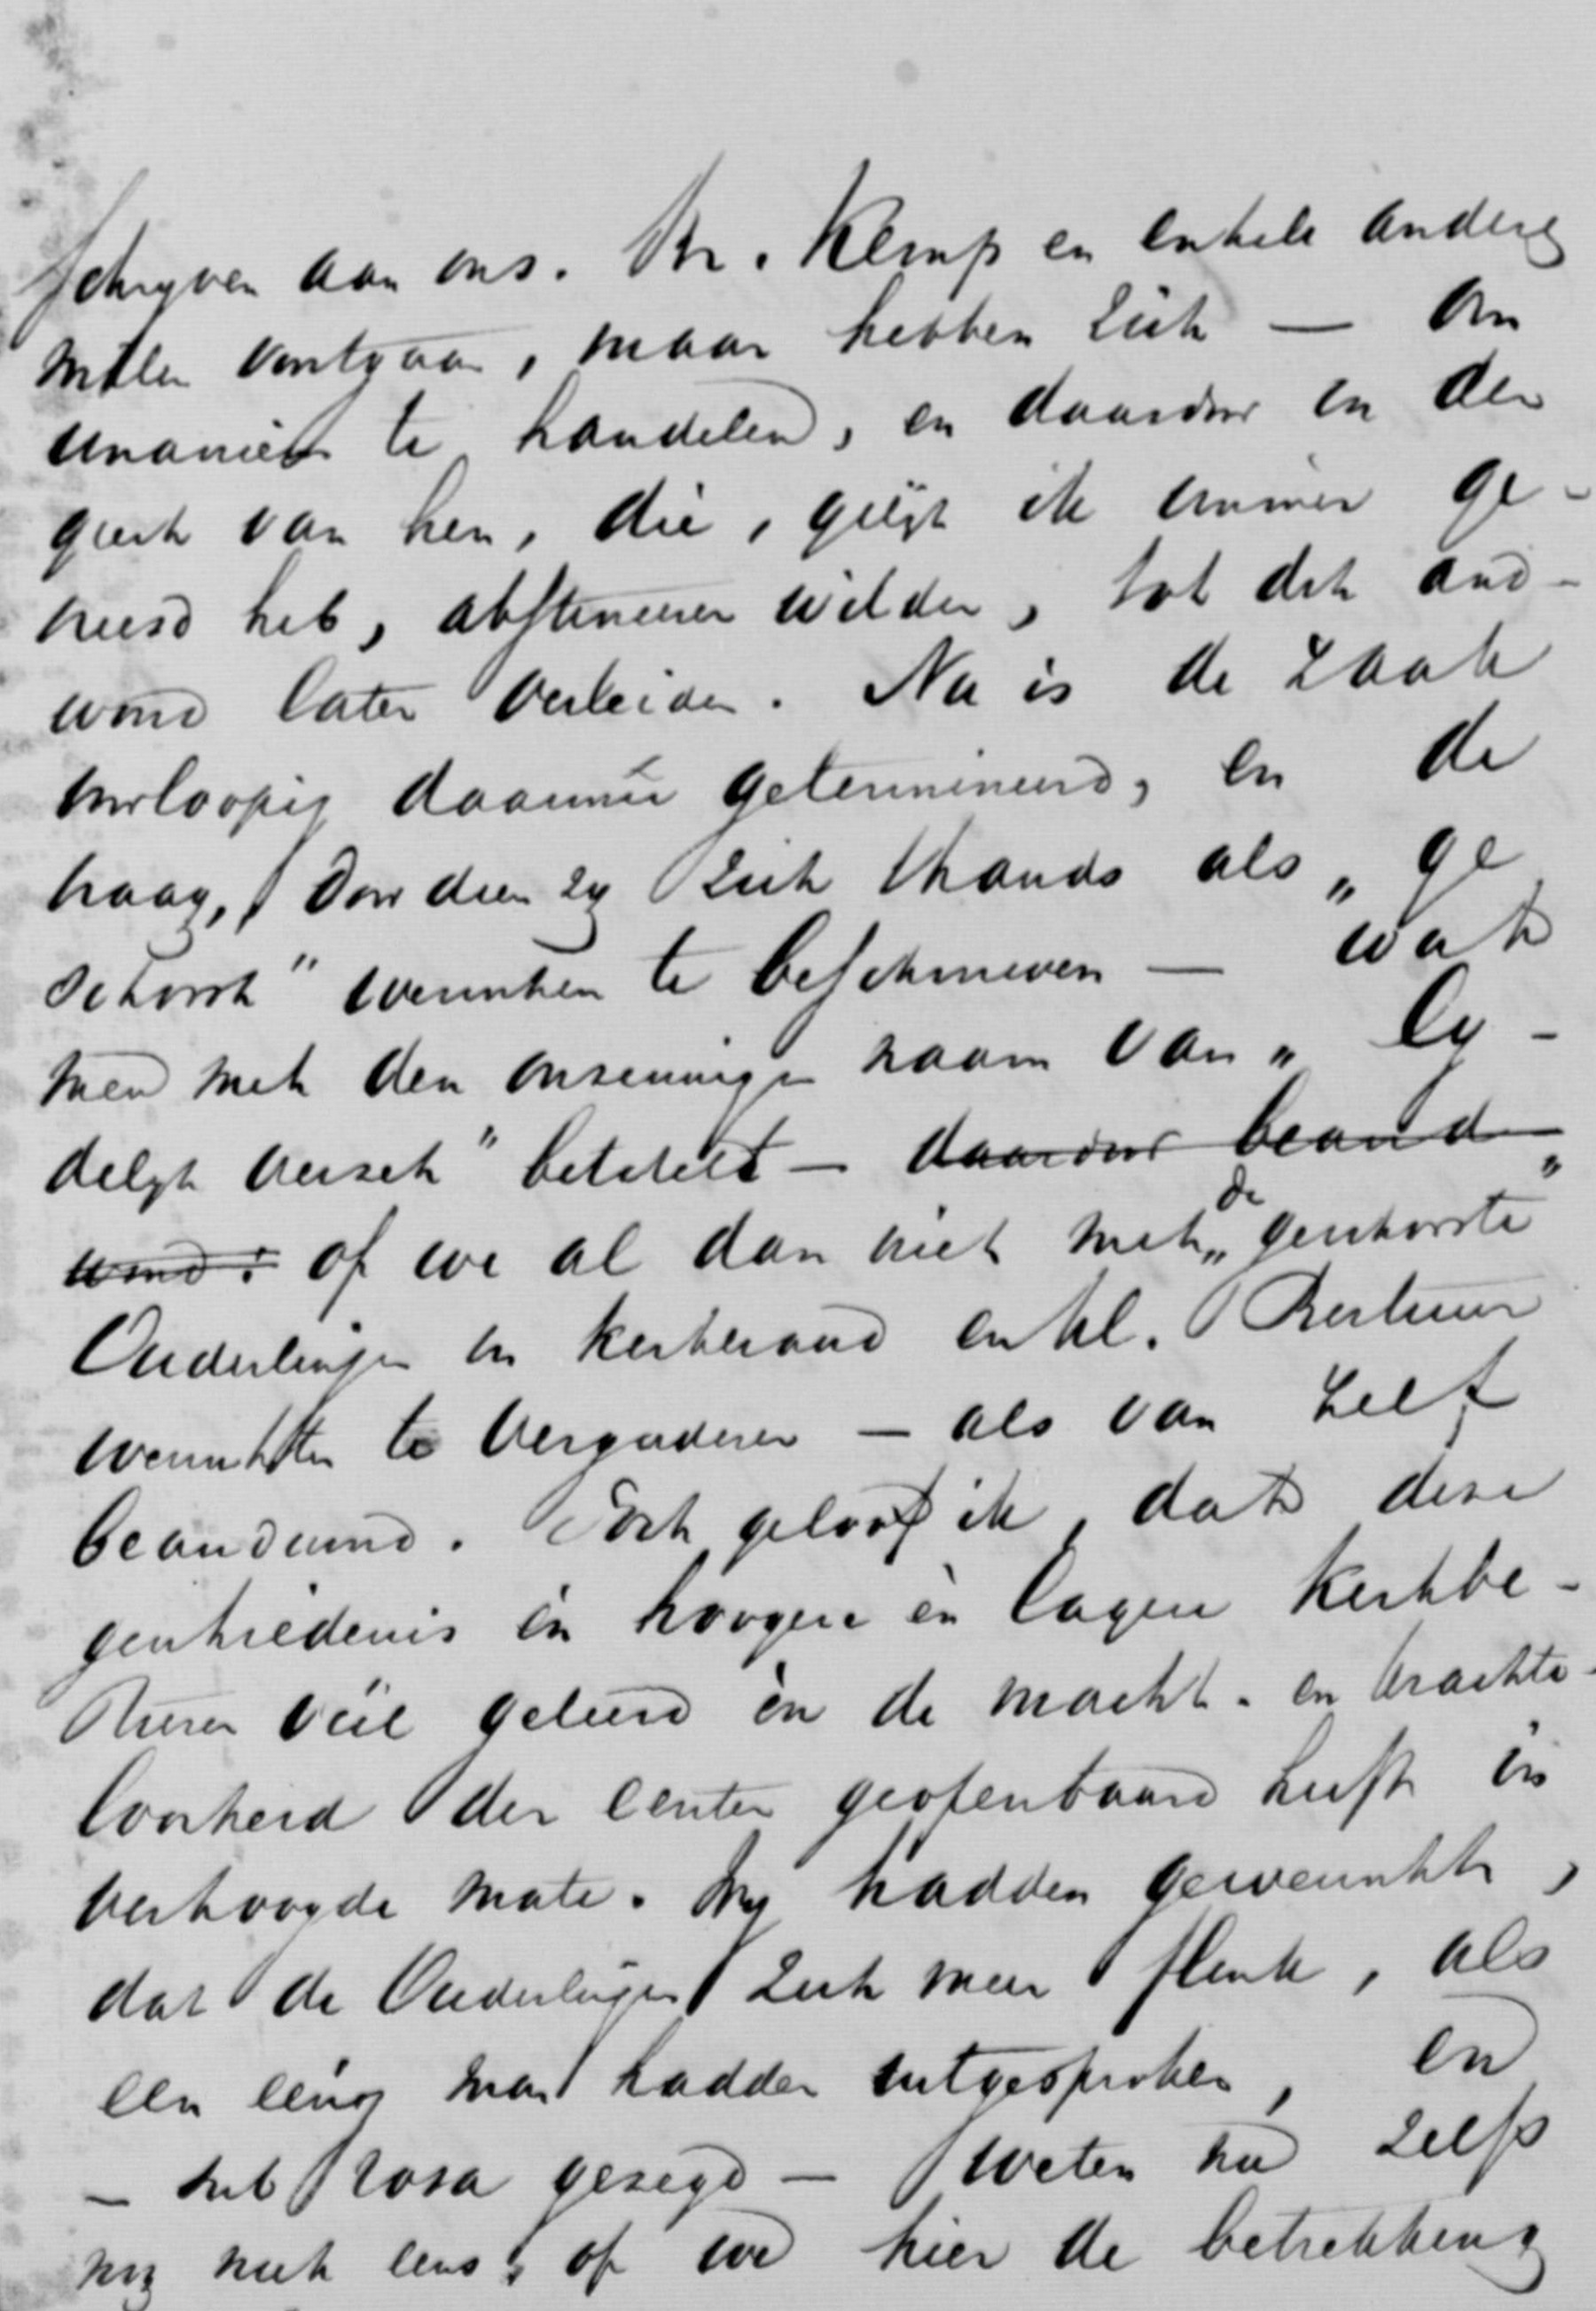 schryven aan ons. Br. Kemp en enkele anderen
wilden voortgaan, maar hebben zich — om
unaniem te handelen, en daardoor in den
geest van hen, die, gelijk ik immer ge-
hoord heb, abstineeren wilden, tot dit ant-
woord laten verleiden. Nu is de zaak
voorloopig daarmee getermineerd, en de
vraag, door dien zy zich thands als „ge
schorst" wenschen te beschouwen — wat
men met den onzinnigen naam van „ly-
delyk verzet" betitelt — daardoor beand
woord: of we al dan niet met de „geschorste"
Ouderlingen in kerkeraad en kl. Bestuur
wenschten te vergaderen — als van zelf
beandwoord. Toch geloof ik, dat deze
geschiedenis èn hoogere èn lagere kerkbe-
sturen veel geleerd èn de macht- en krachte-
loosheid der eersten geopenbaard heeft in
verhoogde mate. Wy hadden gewenscht,
dat de Ouderlingen zich meer flink, als
een eenig man hadden uitgesproken, en
— sub rosa gezegd — weten nu zelfs
nog niet eens, of we hier de betrekking